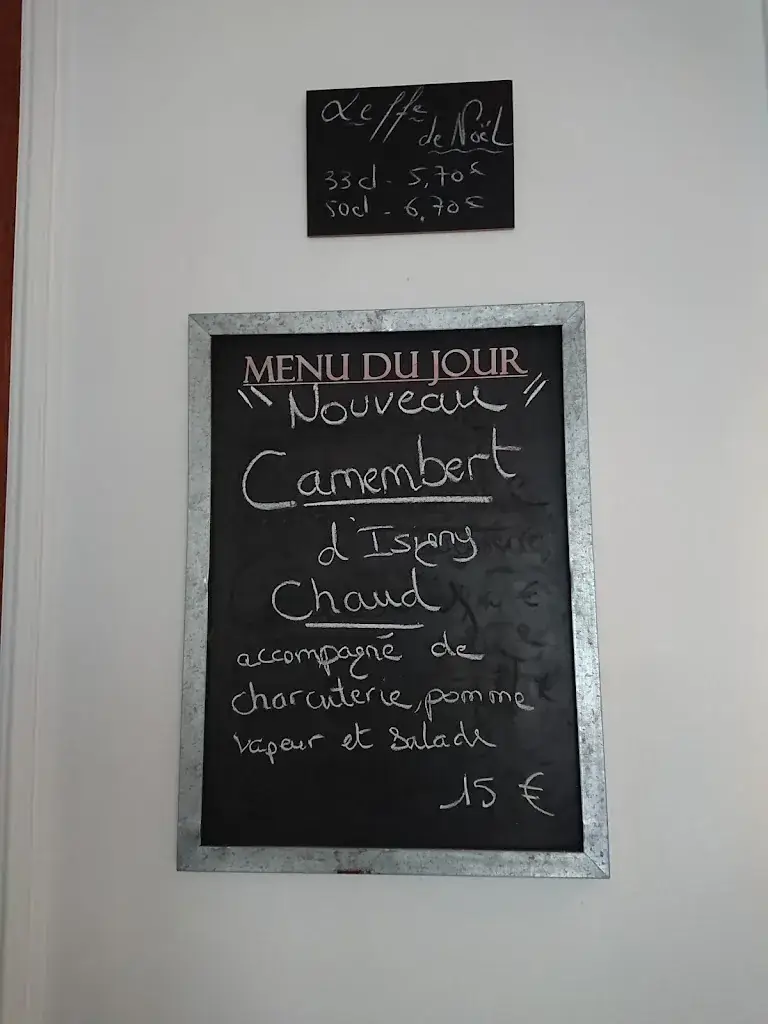 Leffe
de Noël
33cl - 5,70€
50cl - 6,70€
MENU DU JOUR
"Nouveau"
Camembert
d'Isigny
Chaud
accompagné de
charcuterie, pomme
vapeur et salade
15 €